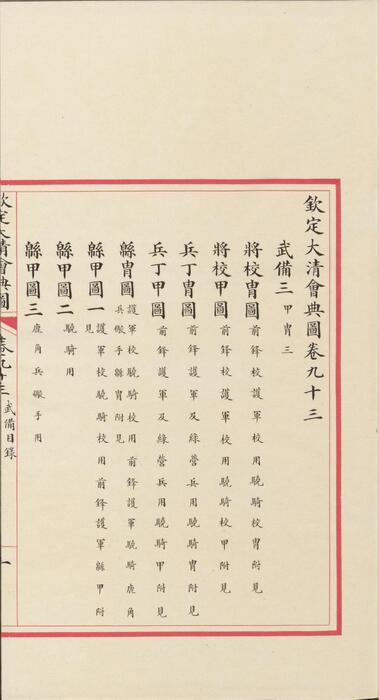 欽定大清會典圖卷九十三
武備三 甲冑三
將校冑圖 前鋒校護軍校用驍騎校冑附見
將校甲圖 前鋒校護軍校用驍騎校甲附見
兵丁冑圖 前鋒護軍及綠營兵用驍騎冑附見
兵丁甲圖 前鋒護軍及綠營兵用驍騎甲附見
緜冑圖 護軍校驍騎校用前鋒護軍驍騎鹿角
兵礮手緜冑附見
緜甲圖一 護軍校驍騎校用前鋒護軍緜甲附
見
緜甲圖二 驍騎用
緜甲圖三 鹿角兵礮手用
欽定大清會典圖 卷九十三 武備目錄 一